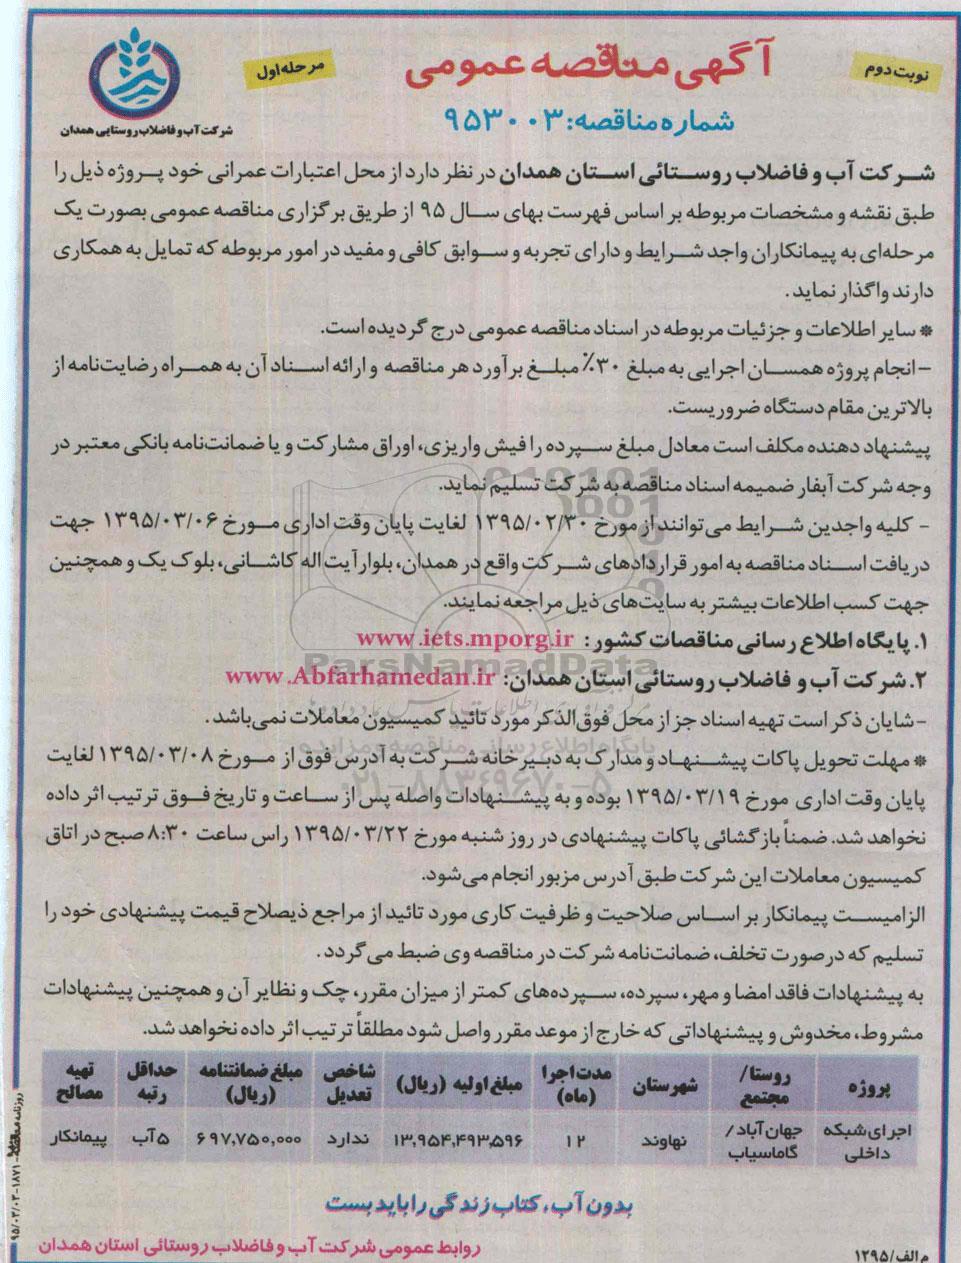 نوبت دوم
آگهی مناقصه عمومی
مرحله اول
شماره مناقصه: ۹۵۳۰۰۳
شرکت آب و فاضلاب روستایی همدان
شرکت آب و فاضلاب روستائی استان همدان در نظر دارد از محل اعتبارات عمرانی خود پروژه ذیل را
طبق نقشه و مشخصات مربوطه بر اساس فهرست بهای سال ۹۵ از طریق برگزاری مناقصه عمومی بصورت یک
مرحله‌ای به پیمانکاران واجد شرایط و دارای تجربه و سوابق کافی و مفید در امور مربوطه که تمایل به همکاری
دارند واگذار نماید.
* سایر اطلاعات و جزئیات مربوطه در اسناد مناقصه عمومی درج گردیده است.
- انجام پروژه همسان اجرایی به مبلغ ۳۰٪ مبلغ برآورد هر مناقصه و ارائه اسناد آن به همراه رضایت‌نامه از
بالاترین مقام دستگاه ضروریست.
پیشنهاد دهنده مکلف است معادل مبلغ سپرده را فیش واریزی، اوراق مشارکت و یا ضمانت‌نامه بانکی معتبر در
وجه شرکت آبفار ضمیمه اسناد مناقصه به شرکت تسلیم نماید.
- کلیه واجدین شرایط می‌توانند از مورخ ۱۳۹۵/۰۲/۳۰ لغایت پایان وقت اداری مورخ ۱۳۹۵/۰۳/۰۶ جهت
دریافت اسناد مناقصه به امور قراردادهای شرکت واقع در همدان، بلوار آیت اله کاشانی، بلوک یک و همچنین
جهت کسب اطلاعات بیشتر به سایت‌های ذیل مراجعه نمایند.
۱. پایگاه اطلاع رسانی مناقصات کشور: www.iets.mporg.ir
ParsNamadData
۲. شرکت آب و فاضلاب روستائی استان همدان: www.Abfarhamedan.ir
- شایان ذکر است تهیه اسناد جز از محل فوق‌الذکر مورد تائید کمیسیون معاملات نمی‌باشد.
پایگاه اطلاع رسانی مناقصه و مزایده
* مهلت تحویل پاکات پیشنهاد و مدارک به دبیرخانه شرکت به آدرس فوق از مورخ ۱۳۹۵/۰۳/۰۸ لغایت
۰۲۱-۸۸۳۴۹۶۷۰-۵
پایان وقت اداری مورخ ۱۳۹۵/۰۳/۱۹ بوده و به پیشنهادات واصله پس از ساعت و تاریخ فوق ترتیب اثر داده
نخواهد شد. ضمناً بازگشائی پاکات پیشنهادی در روز شنبه مورخ ۱۳۹۵/۰۳/۲۲ راس ساعت ۸:۳۰ صبح در اتاق
کمیسیون معاملات این شرکت طبق آدرس مزبور انجام می‌شود.
الزامیست پیمانکار بر اساس صلاحیت و ظرفیت کاری مورد تائید از مراجع ذیصلاح قیمت پیشنهادی خود را
تسلیم که در صورت تخلف، ضمانت‌نامه شرکت در مناقصه وی ضبط می‌گردد.
به پیشنهادات فاقد امضا و مهر، سپرده، سپرده‌های کمتر از میزان مقرر، چک و نظایر آن و همچنین پیشنهادات
مشروط، مخدوش و پیشنهاداتی که خارج از موعد مقرر واصل شود مطلقاً ترتیب اثر داده نخواهد شد.
پروژه | روستا/ مجتمع | شهرستان | مدت اجرا (ماه) | مبلغ اولیه (ریال) | شاخص تعدیل | مبلغ ضمانتنامه (ریال) | حداقل رتبه | تهیه مصالح
اجرای شبکه داخلی | جهان آباد/ گاماسیاب | نهاوند | ۱۲ | ۱۳,۹۵۴,۴۹۳,۵۹۶ | ندارد | ۶۹۷,۷۵۰,۰۰۰ | ۵ آب | پیمانکار
بدون آب، کتاب زندگی را باید بست
روابط عمومی شرکت آب و فاضلاب روستائی استان همدان
م الف/۱۲۹۵